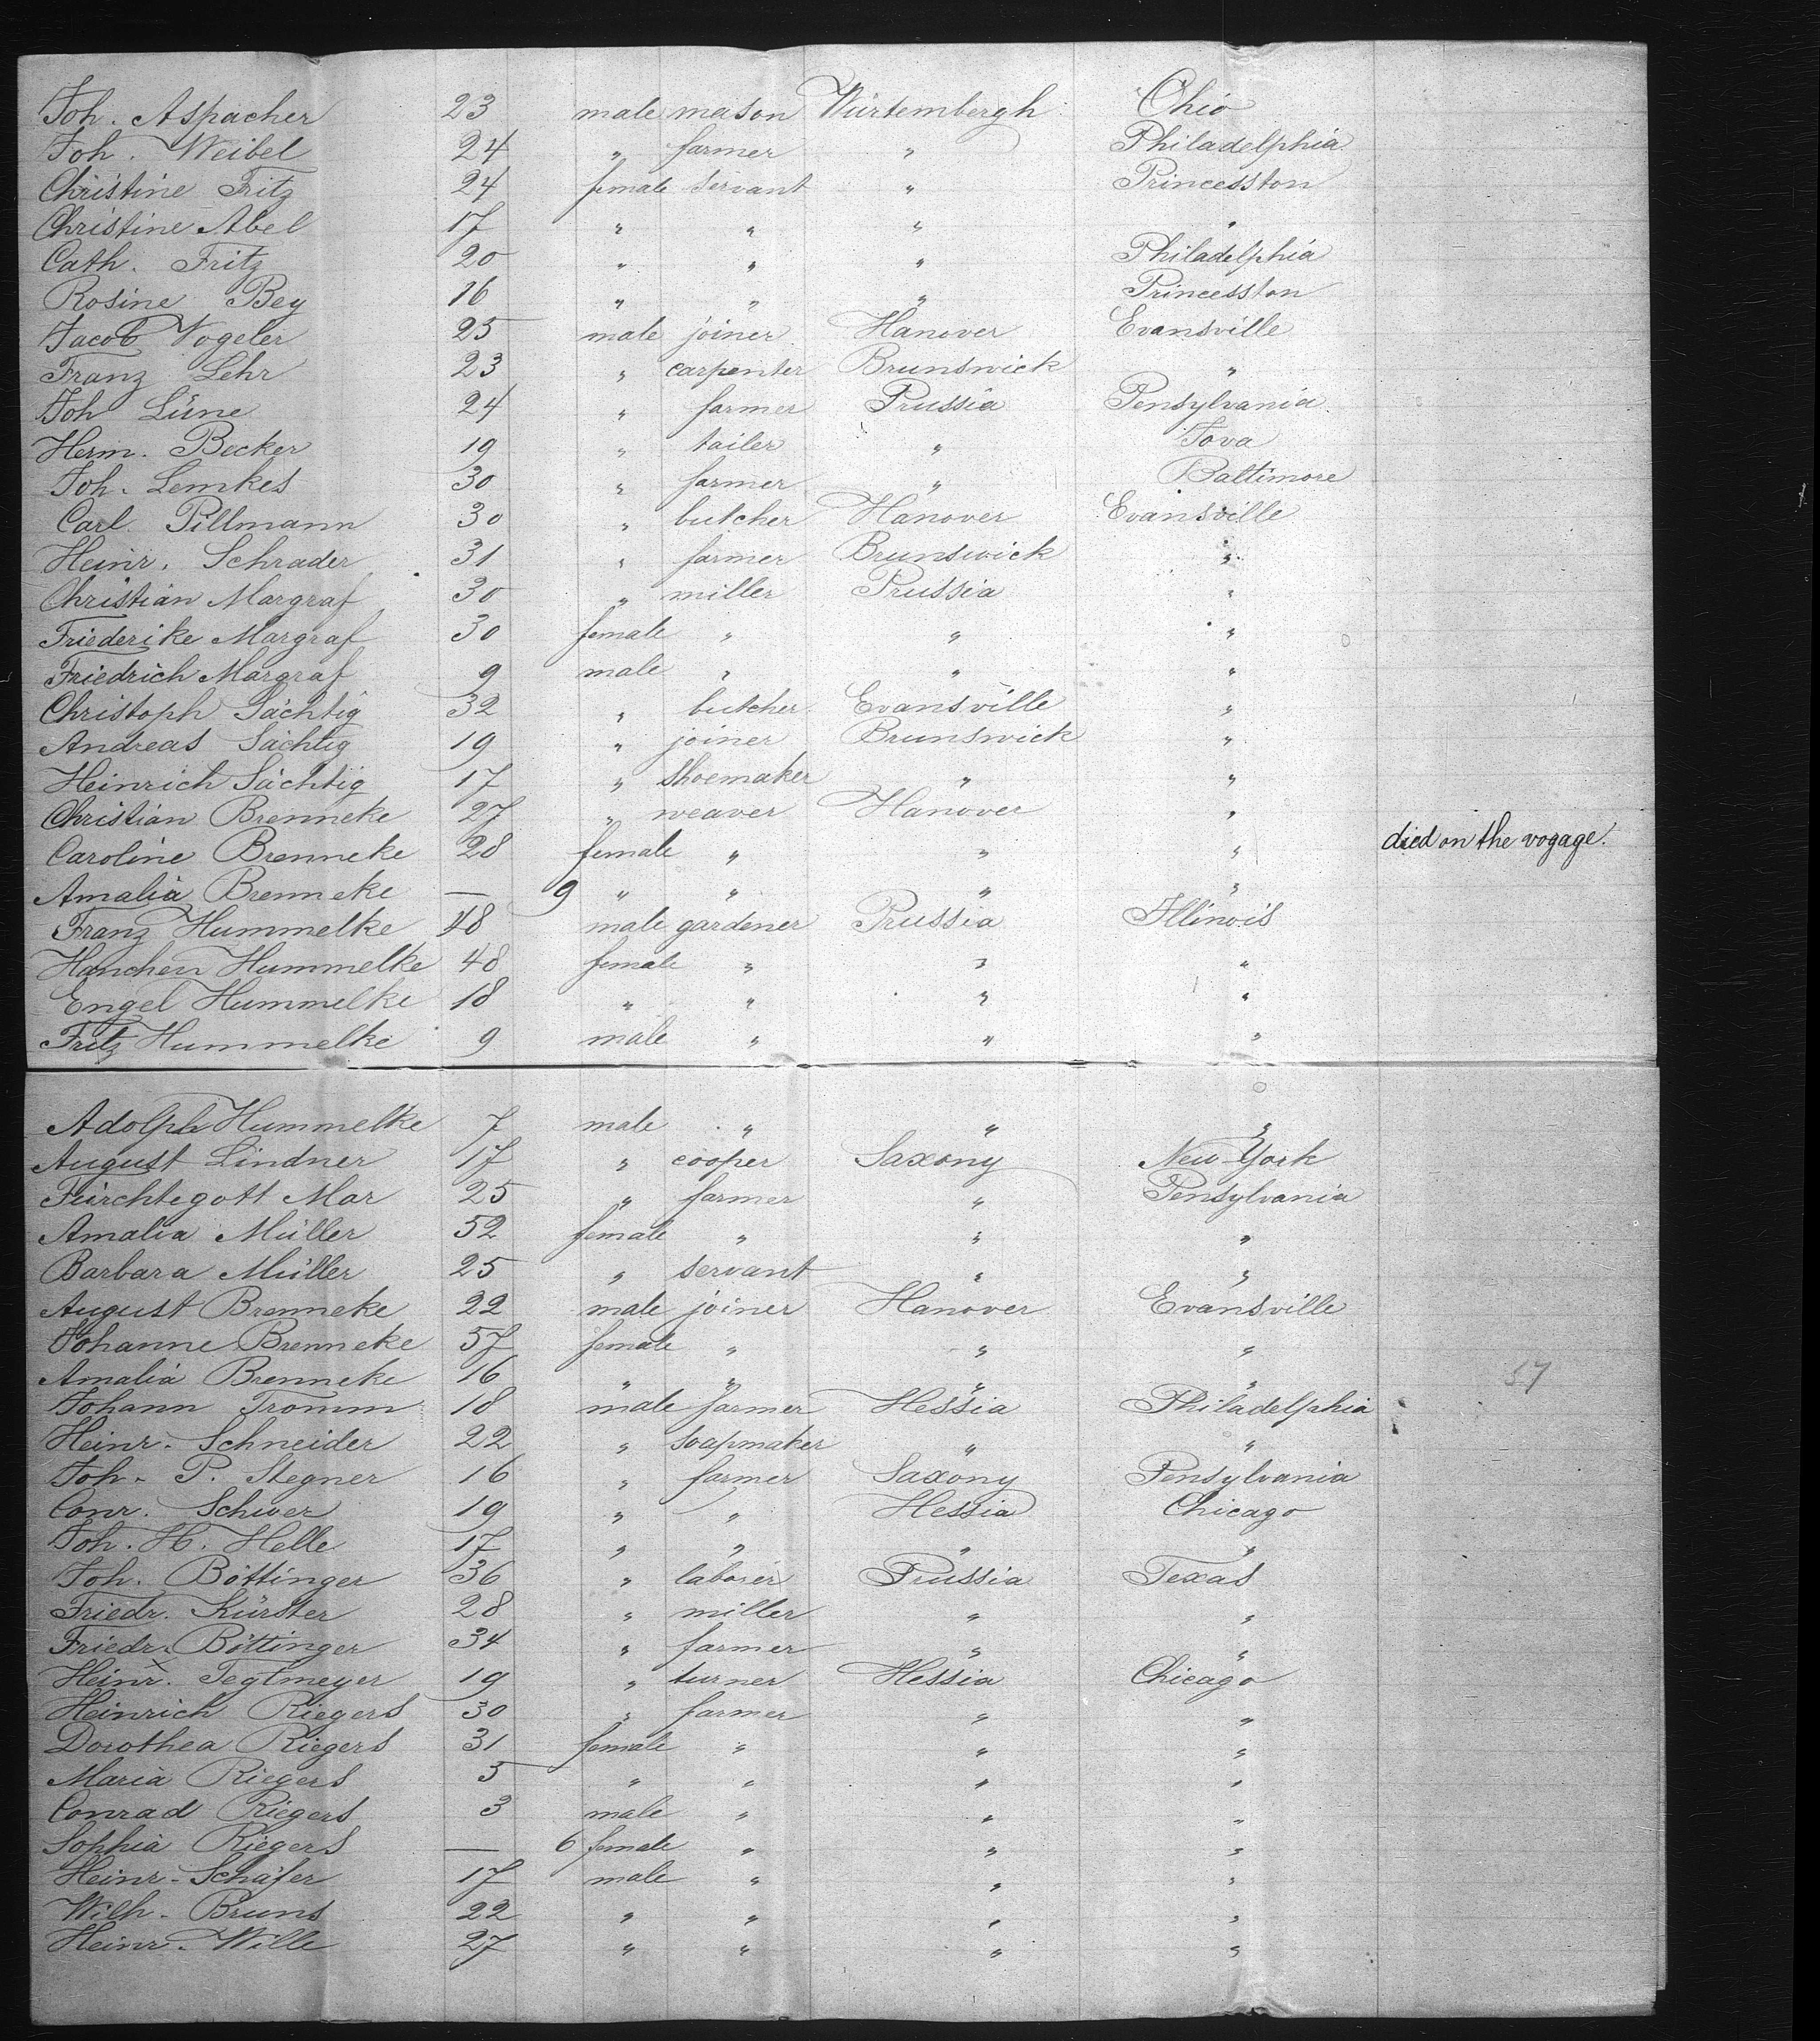 Joh. Aspacher 23 male mason Würtembergh Ohio
Joh. Weibel 24 " farmer " Philadelphia
Christine Fritz 24 female servant " Princesston
Christine Abel 17 " " " "
Cath. Fritz 20 " " " Philadelphia
Rosine Bey 16 " " " Princesston
Jacob Vogeler 25 male joiner Hanover Evansville
Franz Lehr 23 " carpenter Brunswick "
Joh Lüne 24 " farmer Prussia Pensylvania
Herm. Becker 19 " tailer " Iova
Joh. Lemkes 30 " farmer " Baltimore
Carl Pillmann 30 " butcher Hanover Evansville
Heinr. Schrader 31 " farmer Brunswick "
Christian Margraf 30 " miller Prussia "
Friederike Margraf 30 female " " "
Friedrich Margraf 9 male " " "
Christoph Sächtig 32 " butcher Evansville "
Andreas Sächtig 19 " joiner Brunswick "
Heinrich Sächtig 17 " shoemaker " "
Christian Brenneke 27 " weaver Hanover "
Caroline Brenneke 28 female " " " died on the vogage.
Amalia Brenneke — 9 " " " "
Franz Hummelke 48 male gardener Prussia Illinois
Hanchen Hummelke 48 female " " "
Engel Hummelke 18 " " " "
Fritz Hummelke 9 male " " "
Adolph Hummelke 7 male " " "
August Lindner 17 " cooper Saxony New-York
Fürchtegott Mar 25 " farmer " Pensylvania
Amalia Müller 52 female " " "
Barbara Müller 25 " servant " "
August Brenneke 22 male joiner Hanover Evansville
Johanne Brenneke 57 female " " "
Amalia Brenneke 16 " " " " 57
Johann Tromm 18 male farmer Hessia Philadelphia
Heinr. Schneider 22 " soapmaker " "
Joh. P. Stegner 16 " farmer Saxony Pensylvania
Conr. Schwer 19 " " Hessia Chicago
Joh. H. Helle 17 " " " "
Joh. Böttinger 36 " laborer Prussia Texas
Friedr. Kürster 28 " miller " "
Friedr. Böttinger 34 " farmer " "
Heinr. Tegtmeyer 19 " turner Hessia Chicago
Heinrich Riegers 30 " farmer " "
Dorothea Riegers 31 female " " "
Maria Riegers 5 " " " "
Conrad Riegers 3 male " " "
Sophia Riegers — 6 female " " "
Heinr. Schäfer 17 male " " "
Wilh. Bruns 22 " " " "
Heinr. Wille 27 " " " "